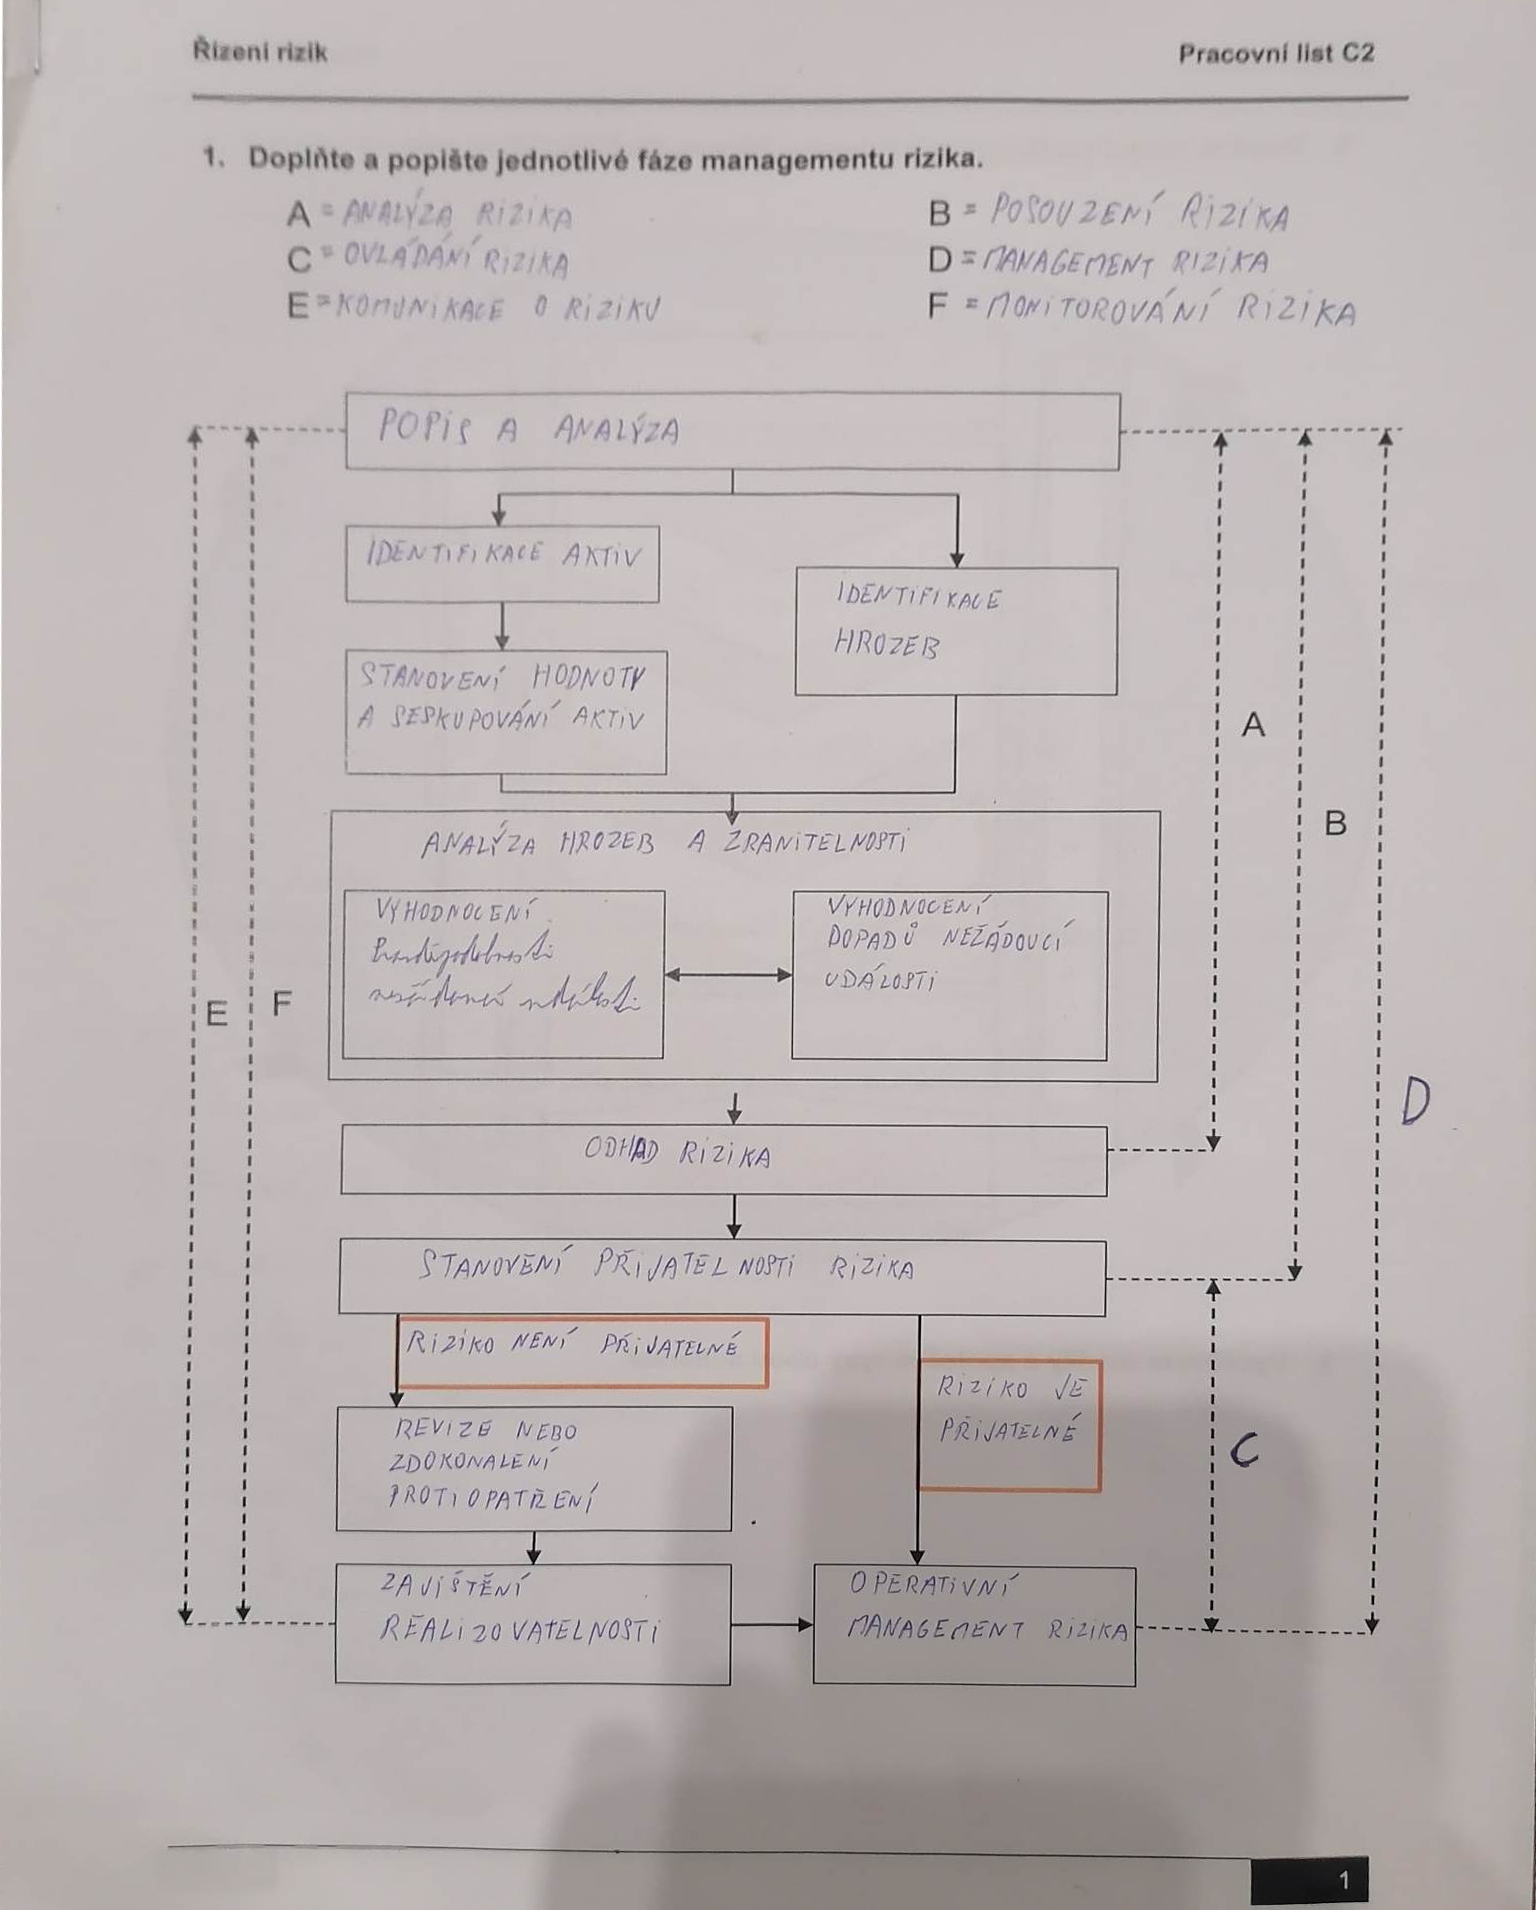 Řízení rizik
Pracovní list C2
1. Doplňte a popište jednotlivé fáze managementu rizika.
A = ANALÝZA RIZIKA
B = POSOUZENÍ RIZIKA
C = OVLÁDÁNÍ RIZIKA
D = MANAGEMENT RIZIKA
E = KOMUNIKACE O RIZIKU
F = MONITOROVÁNÍ RIZIKA
POPIS A ANALÝZA
IDENTIFIKACE AKTIV
IDENTIFIKACE
HROZEB
STANOVENÍ HODNOTY
A SESKUPOVÁNÍ AKTIV
A
B
ANALÝZA HROZEB A ZRANITELNOSTI
VYHODNOCENÍ
Pravděpodobnosti
nežádoucí události
VYHODNOCENÍ
DOPADŮ NEŽÁDOUCÍ
UDÁLOSTI
E
F
D
ODHAD RIZIKA
STANOVENÍ PŘIJATELNOSTI RIZIKA
RIZIKO NENÍ PŘIJATELNÉ
RIZIKO JE
PŘIJATELNÉ
C
REVIZE NEBO
ZDOKONALENÍ
PROTIOPATŘENÍ
ZAJIŠTĚNÍ
REALIZOVATELNOSTI
OPERATIVNÍ
MANAGEMENT RIZIKA
1